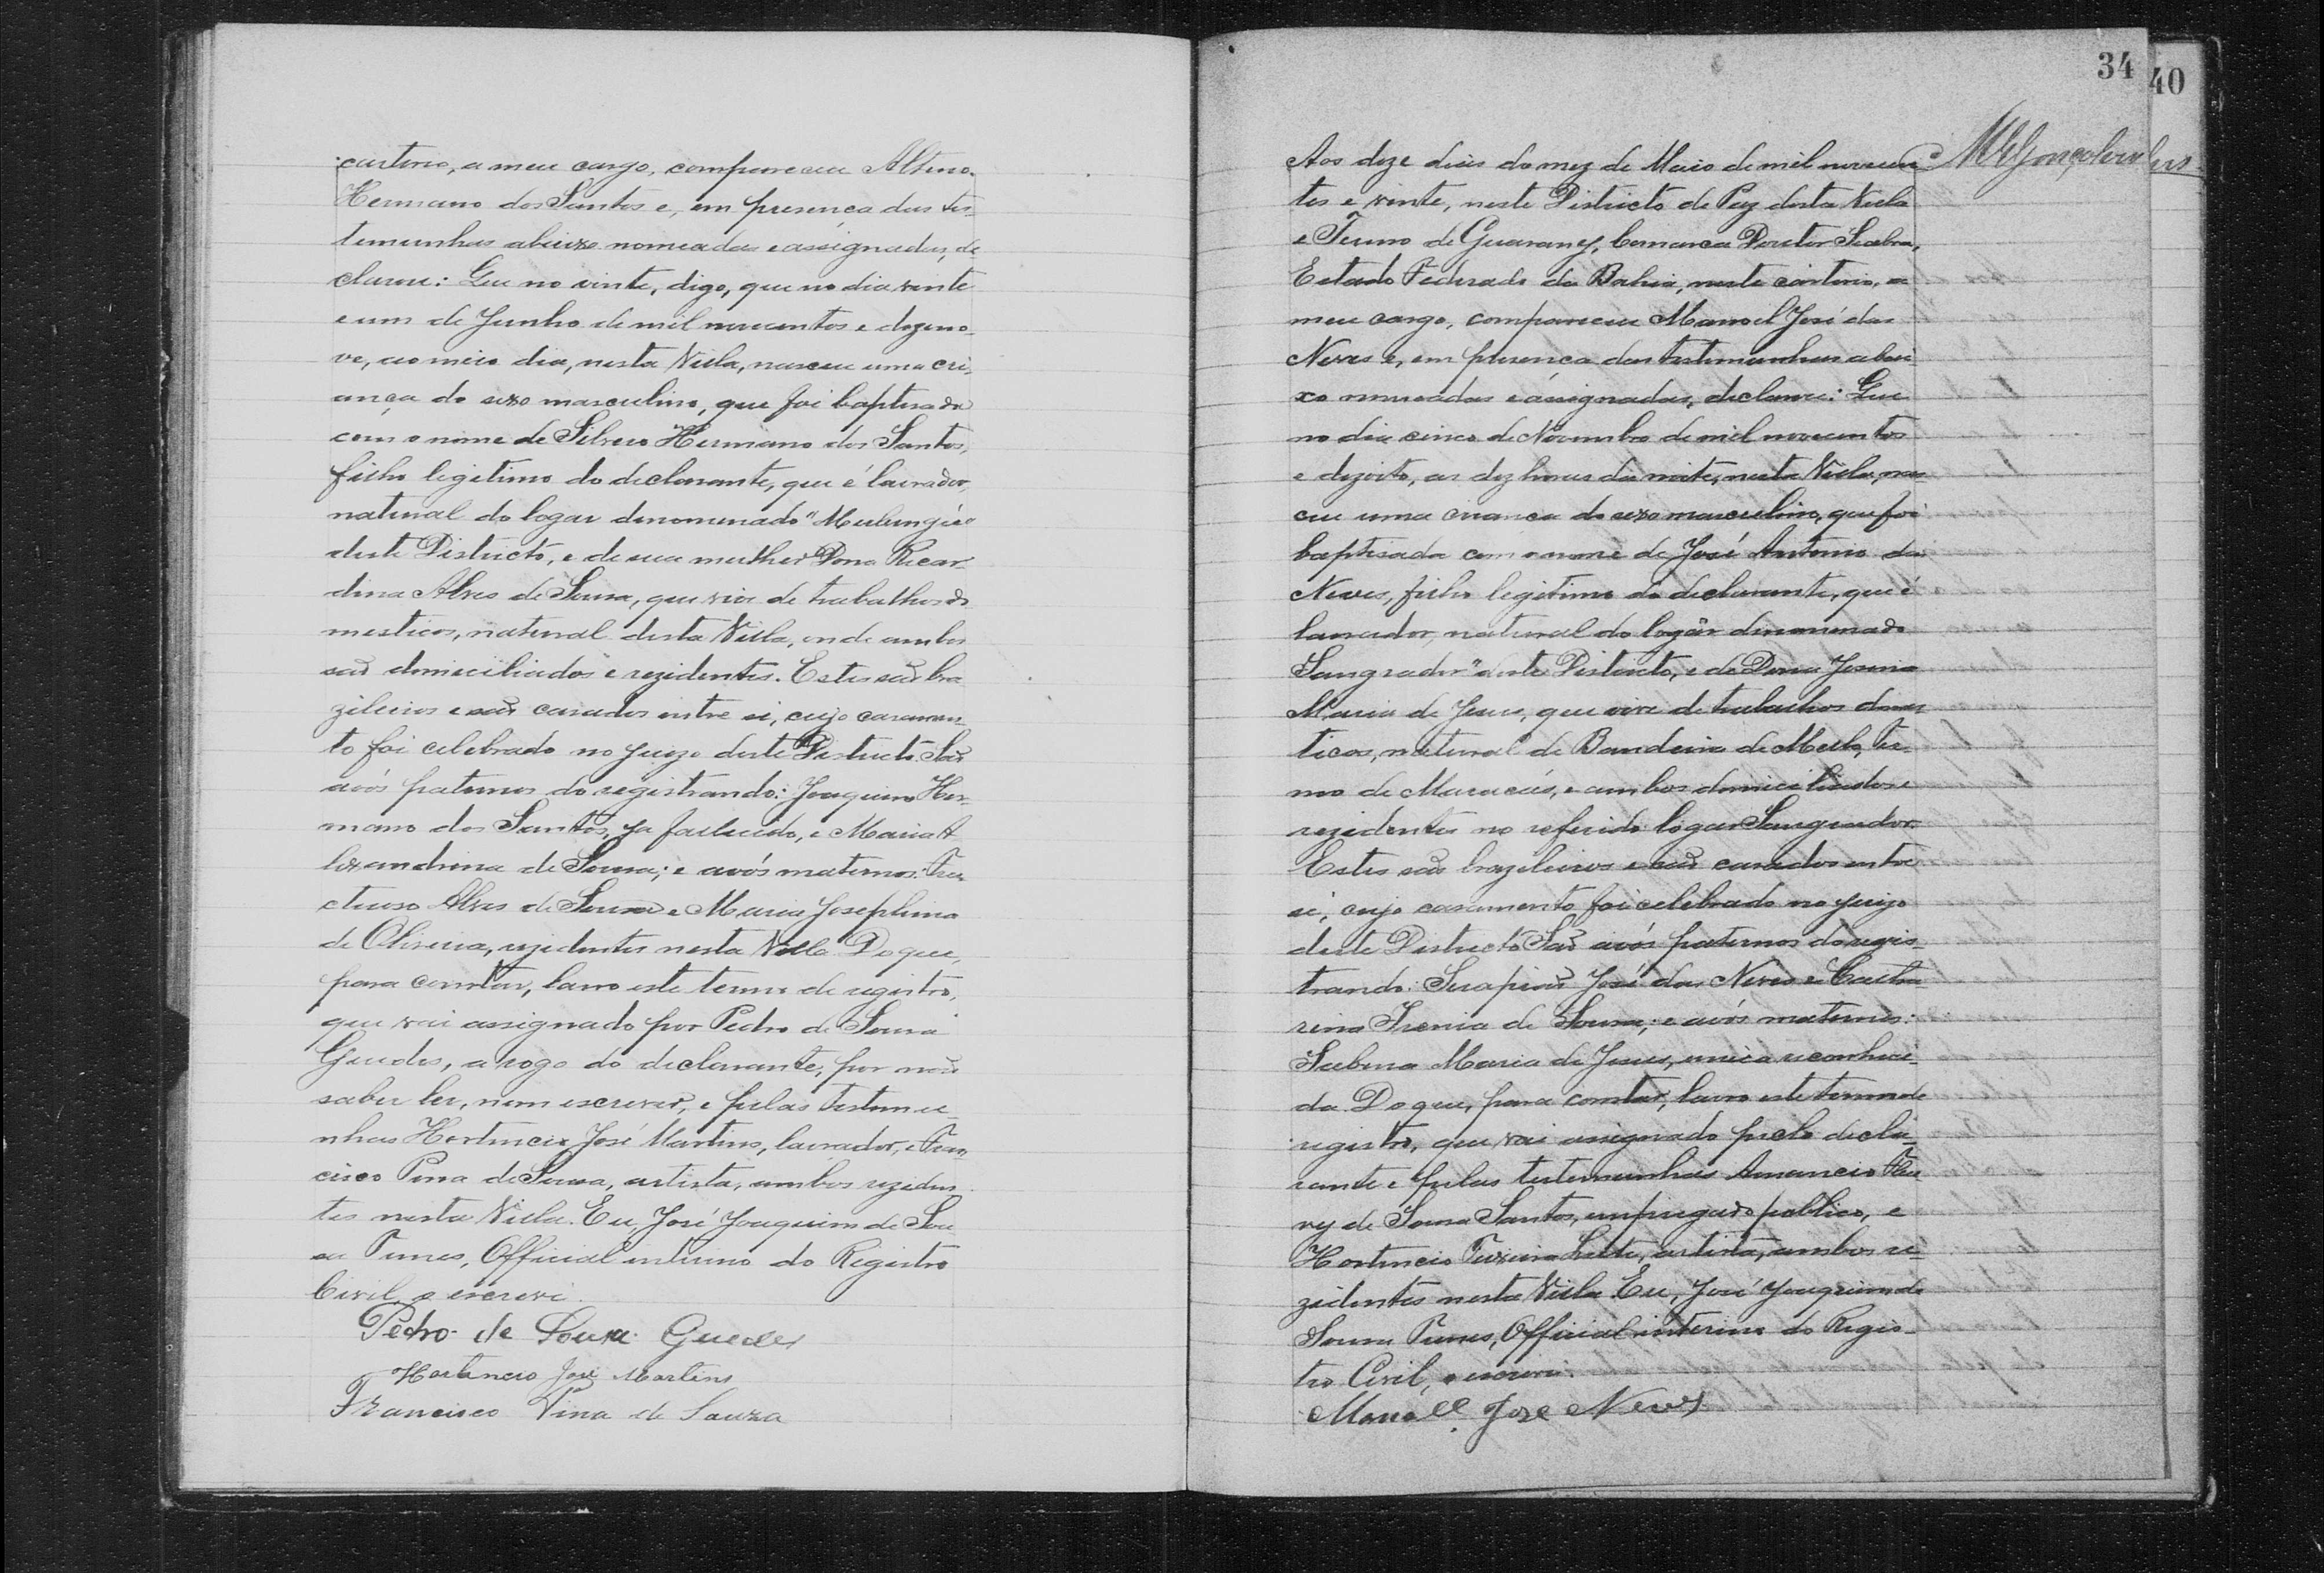 cartorio, a meu cargo, compareceu Altino
Hermano dos Santos e, em presença das tes-
temunhas abaixo nomeadas e assignadas, de-
clarou: Que no vinte, digo, que no dia vinte
e um de Junho de mil novecentos e dezeno-
ve, ao meio dia, nesta Villa, nasceu uma cri-
ança do sexo masculino, que foi baptisada
com o nome de Silverio Hermano dos Santos,
filho legitimo do declarante, que é lavrador,
natural do logar denominado "Mulungú"
deste Districto, e de sua mulher Dona Ricar-
dina Alves de Sousa, que vive de trabalhos do-
mesticos, natural desta Villa, onde ambos
são domiciliados e rezidentes. Estes são bra
zileiros e são casados entre si, cujo casamen-
to foi celebrado no juizo deste Districto. São
avós paternos do registrando: Joaquim Her-
mano dos Santos, ja fallecido, e Maria A
lexandrina de Sousa; e avós maternos: Fru
ctuoso Alves de Sousa e Maria Josephina
de Oliveira, rezidentes nesta Villa. Do que,
para constar, lavro este termo de registro,
que vai assignado por Pedro de Sousa
Guedes, a rogo do declarante, por não
saber ler, nem escrever, e pelas testemu-
nhas Hortencio José Martins, lavrador, e Fran
cisco Pina de Sousa, artista, ambos reziden
tes nesta Villa. Eu, José Joaquim de Sou
sa Tunes, Official interino do Registro
Civil, o escrevi.
Pedro de Souza Guedes
Hortencio José Martins
Francisco Pina de Souza
34
40
Aos doze dias do mez de Maio de mil novecen
tos e vinte, neste Districto de Paz desta Villa
e Termo de Guarany, Comarca Doutor Seabra,
Estado Federado da Bahia, neste cartorio, a
meu cargo, compareceu Manoel José das
Neves e, em presença das testemunhas abai
xo nomeadas e assignadas, declarou: Que
no dia cinco de Novembro de mil novecentos
e dezoito, as dez horas da noite, nesta Villa, nas
ceu uma criança do sexo masculino, que foi
baptisada com o nome de José Antonio das
Neves, filho legitimo do declarante, que é
lavrador, natural do logar denominado
Sangrador" deste Districto, e de Dona
Maria de Jesus, que vive de trabalhos domes
ticos, natural de Bandeira de Mello, Ter-
mo de Maracás, e ambos domiciliados e
rezidentes no referido logar Sangrador.
Estes são brazileiros e são casados entre
si, cujo casamento foi celebrado no juizo
deste Districto. São avós paternos do regis-
trando: Serapião José das Neves e Catha
rina Irenia de Sousa; e avós maternos:
Maria de Jesus, unica reconheci-
da. Do que, para constar, lavro este termo de
registro, que vai assignado pelo decla-
rante e pelas testemunhas Amancio
de Sousa Santos, empregado publico, e
Hortencio Teixeira Leite, artista, ambos re-
zidentes nesta Villa. Eu, José Joaquim de
Sousa Tunes, Official interino do Regis-
tro Civil, o escrevi.
Manoel José Neves